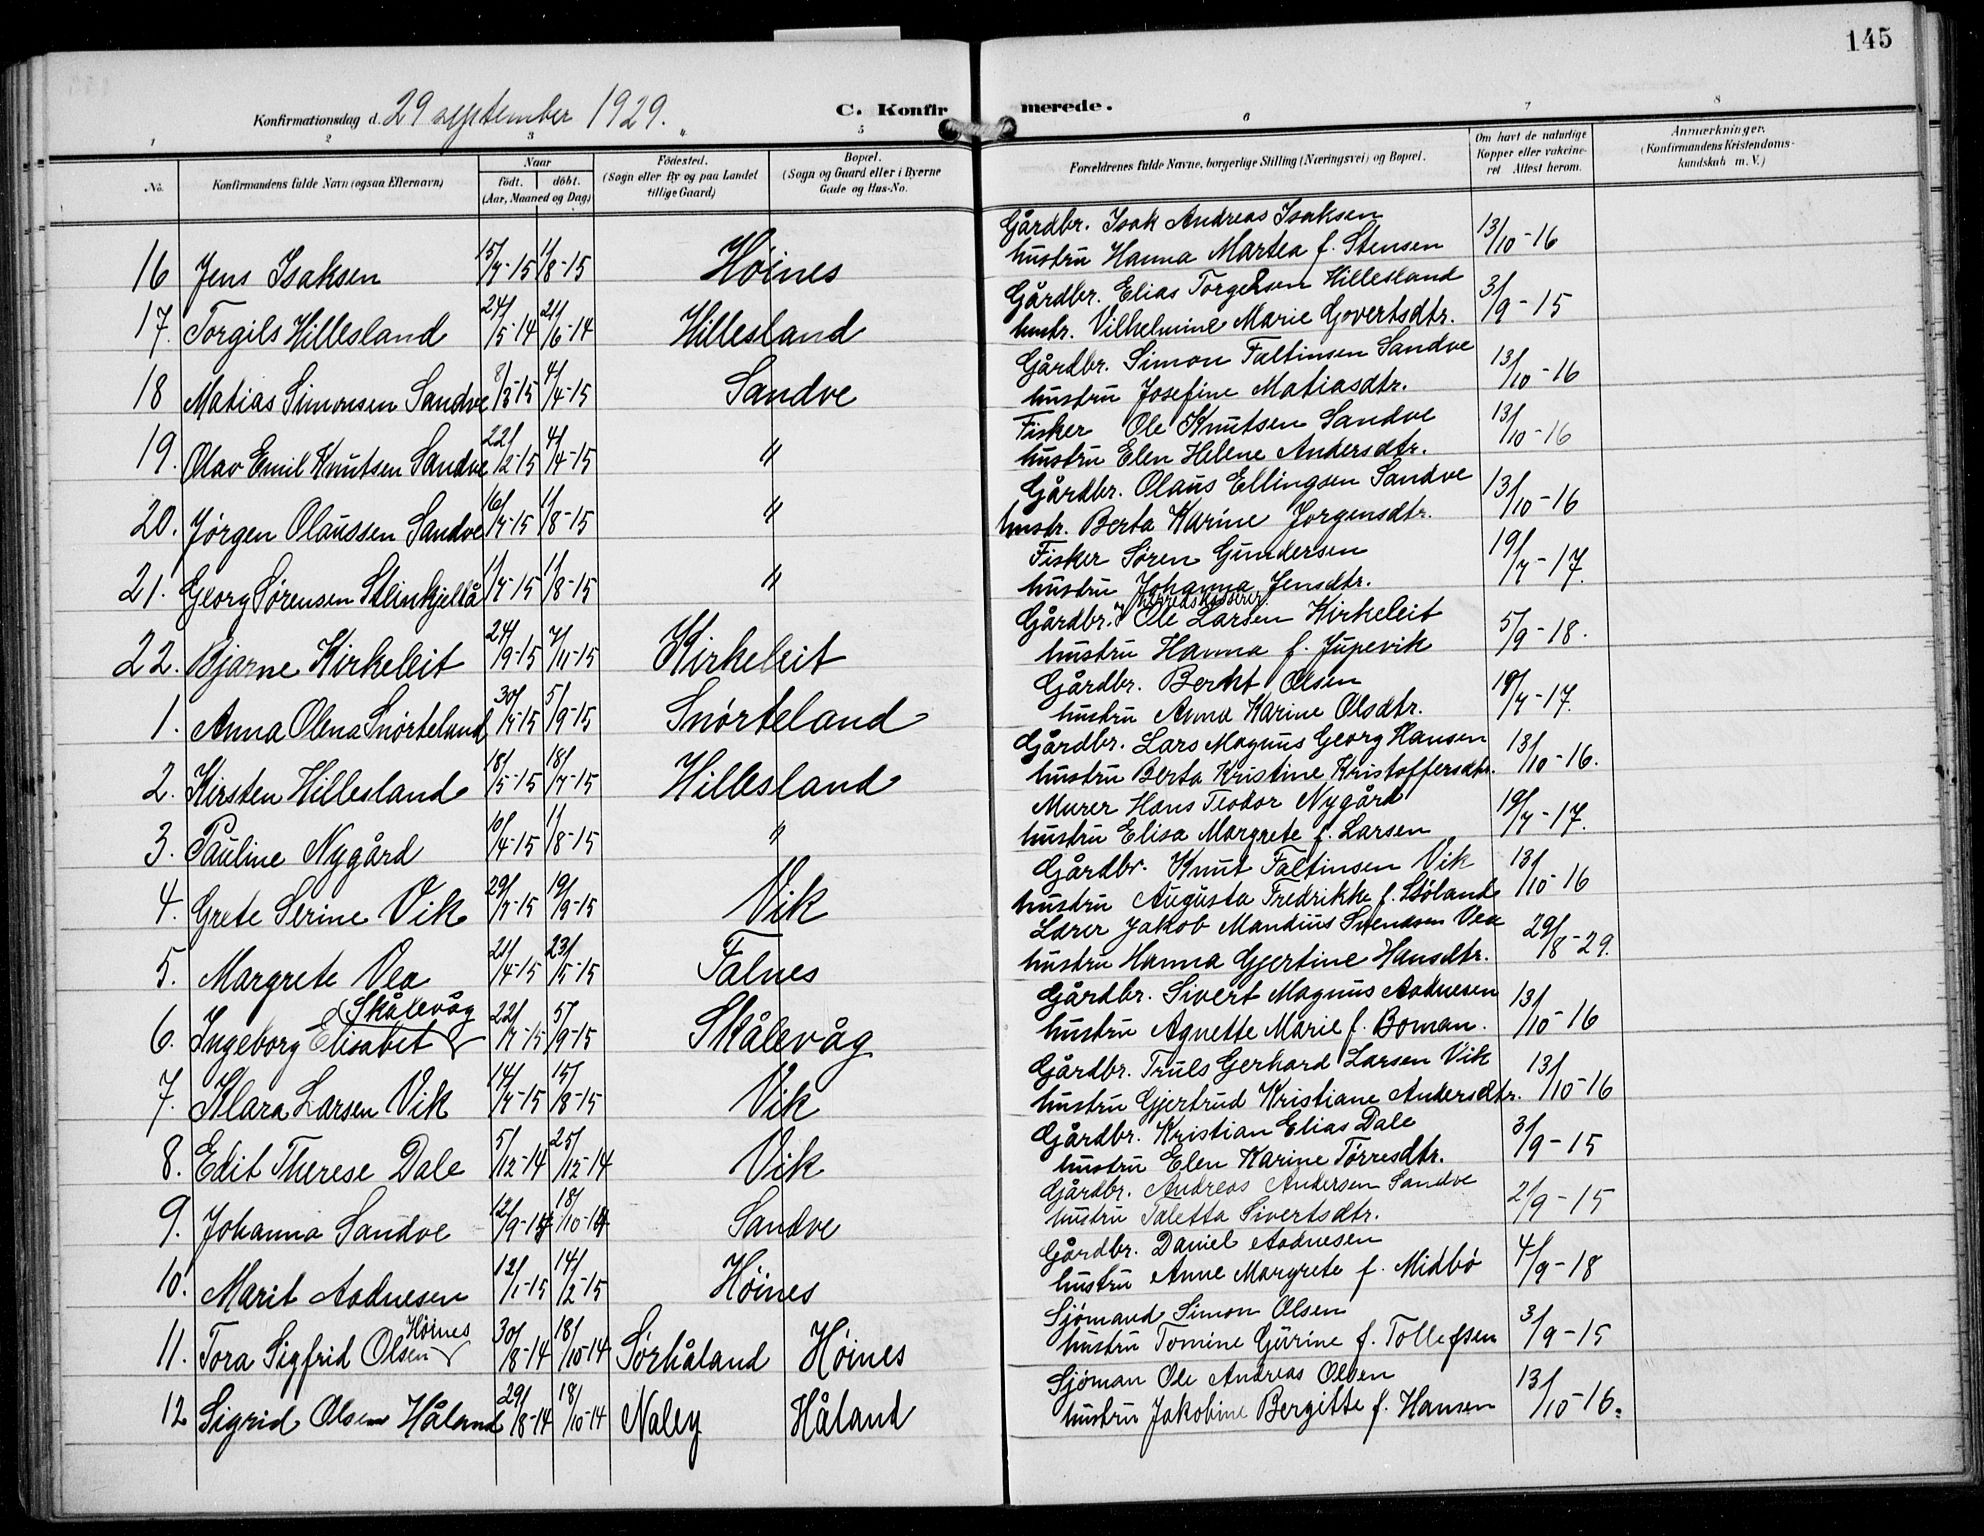 145
Konfirmationsdag d. 29 september 1929.
C. Konfirmerede.
1 2 3 5 6 7 8
No. Konfirmandens fulde Navn (ogsaa Efternavn) Naar født. døbt. (Aar, Maaned og Dag) Fødested. (Sogn eller By og paa Landet tillige Gaard) Bopæl. (Sogn og Gaard eller i Byerne Gade og Hus-No. Forældrenes fulde Navne, borgerlige Stilling (Næringsvei) og Bopæl. Om havt de naturlige Kopper eller vakcineret Attest herom. Anmærkninger. (Konfirmandens Kristendomskundskab m. V.)
16 Jens Isaksen 15/7-15 1/8-15 Høines Gårdbr. Isak Andreas Isaksen 13/10-16
hustru Hanna Martea f. Stensen
17. Torgils Hillesland 24/5-14 21/6-14 Hillesland Gårdbr. Elias Torgersen Hillesland 3/9-15
hustr. Vilhelmine Marie Govertsdtr.
18 Matias Simonsen Sandve 8/3-15 4/4-15 Sandve Gårdbr. Simon Faltinsen Sandve 13/10-16
hustru Josefine Matiasdtr.
19. Olav Emil Knutsen Sandve 22/2-15 4/4-15 " Fisker Ole Knutsen Sandve 13/10-16
hustru Elen Helene Andersdtr.
20. Jørgen Olaussen Sandve 16/7-15 1/8-15 " Gårdbr. Olaus Ellingsen Sandve 13/10-16
hustr. Berta Karine Jørgensdtr.
21. Georg Sørensen Steinkjellå 1/7-15 1/8-15 " Fisker Søren Gundersen 19/7-17.
hustru Johanna Jensdtr.
22. Bjarne Kirkeleit 24/9-15 7/11-15 Kirkeleit Gårdbr. herredskasserer Ole Larsen Kirkeleit 5/9-18.
hustru Hanna f. Jupevik
1. Anna Olena Snørteland 30/7-15 5/9-15 Snørteland Gårdbr. Bernt Olsen 19/7-17.
hustru Anna Karine Olsdtr.
2. Kirsten Hillesland 18/5-15 18/7-15 Hillesland Gårdbr. Lars Magnus Georg Hansen 13/10-16.
hustru Berta Kristine Kristoffersdtr.
3. Pauline Nygård 10/4-15 1/8-15 " Murer Hans Teodor Nygård 19/7-17.
hustru Elisa Margrete f. Larsen
4. Grete Serine Vik 29/7-15 19/9-15 Vik Gårdbr. Knut Faltinsen Vik 13/10-16
hustru Augusta Fredrikke f. Støland
5. Margrete Vea 21/4-15 23/5-15 Falnes Lærer Jakob Mandius Svendsen Vea 29/8-29.
hustru Hanna Gjertine Hansdtr.
6. Ingeborg Elisabet Skålevåg 22/7-15 5/9-15 Skålevåg Gårdbr. Sivert Magnus Aadnesen 13/10-16
hustru Agnette Marie f. Boman.
7. Klara Larsen Vik 14/7-15 15/8-15 Vik Gårdbr. Truls Gerhard Larsen Vik 13/10-16
hustru Gjertrud Kristiane Andersdtr.
8. Edit Therese Dale 5/12-14 25/12-14 Vik Gårdbr. Kristian Elias Dale 3/9-15
hustru Elen Karine Tørresdtr.
9. Johanna Sandve 12/9-14 18/10-14 Sandve Gårdbr. Andreas Andersen Sandve 21/9-15
hustru Taletta Sivertsdtr.
10. Marit Aadnesen 12/1-15 14/2-15 Høines Gårdbr. Daniel Aadnesen 4/9-18
hustru Anne Margrete f. Midbø
11. Tora Sigfrid Olsen Høines 30/8-14 18/10-14 Sørhåland Høines Sjømand Simon Olsen 3/9-15
hustru Tomine Gurine f. Tollefsen
12 Sigrid Olsen Håland 29/8-14 18/10-14 Naley Håland Sjøman Ole Andreas Olsen 13/10-16.
hustru Jakobine Bergitte f. Hansen